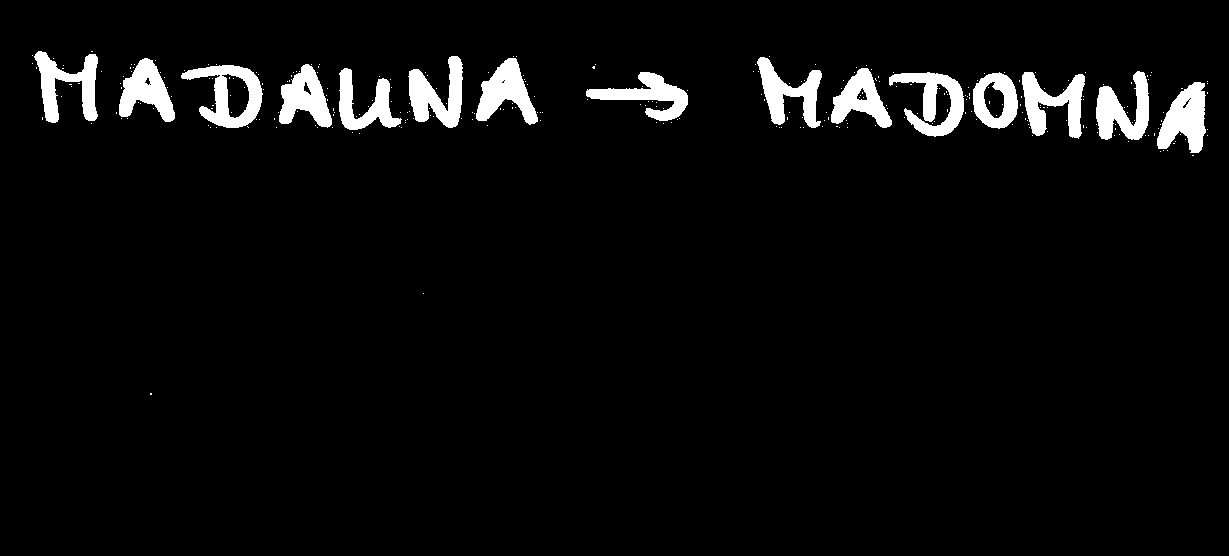 MADAUNA → MADOMNA